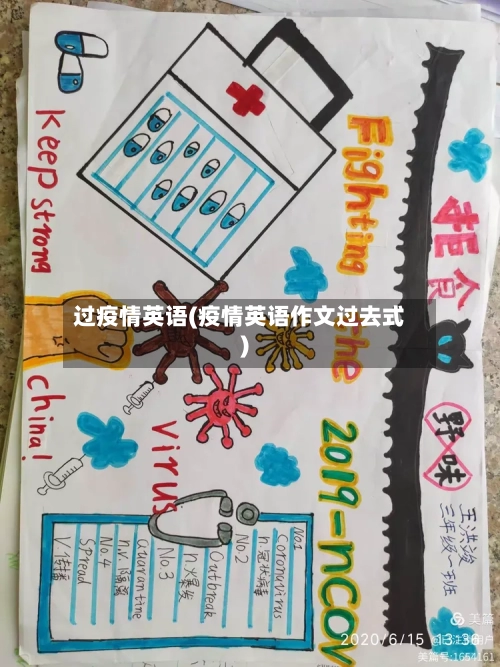 Keep strong
china!
Fighting
the
2019-nCoV
virus
拒食
野味
三年级一班
过疫情英语(疫情英语作文过去式
)
No.1
Coronavirus
n 冠状病毒
No.2
Outbreak
n 爆发
No.3
quarantine
n.v 隔离
No.4
Spread
V 传播
2020/6/15 13:36
美篇
美篇号:1664161